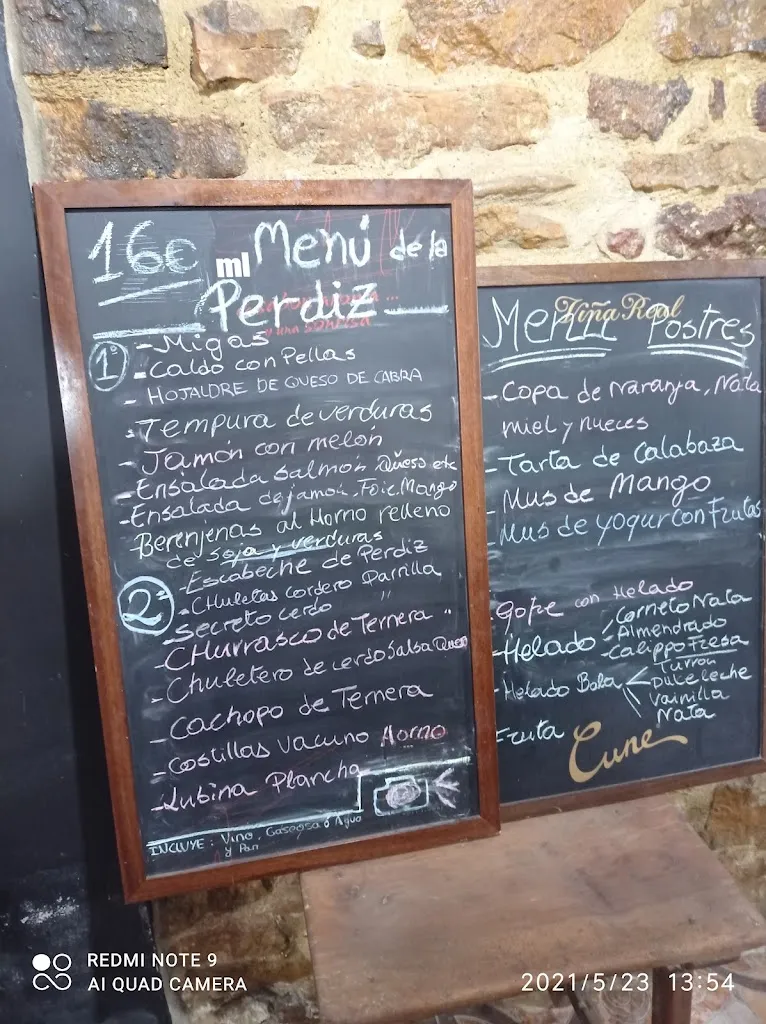 16€ Menú de la
Perdiz
1º
- Migas
- Caldo con Pellas
- HOJALDRE DE QUESO DE CABRA
- Tempura de verduras
- Jamón con melón
- Ensalada Salmón Queso etc
- Ensalada de jamon, Foie, Mango
- Berenjenas al Horno relleno
de soja y verduras
2º
- Escabeche de Perdiz
- CHuletas cordero Parrilla
- Secreto cerdo "
- CHurrasco de Ternera "
- Chuletero de cerdo Salsa Queso
- Cachopo de Ternera
- Costillas vacuno Horno
- Lubina Plancha
INCLUYE: Vino, Gaseosa ó Agua
y Pan
Viña Real
Menú Postres
- Copa de Naranja, Nata
miel y nueces
- Tarta de Calabaza
- Mus de Mango
- Mus de yogur con Frutas
- Gofre con Helado
- Helado - Corneto Nata
- Almendrado
- Calippo Fresa
- Helado Bola Turron
Dulce leche
Vainilla
Nata
- Fruta
Cune
REDMI NOTE 9
AI QUAD CAMERA
2021/5/23 13:54